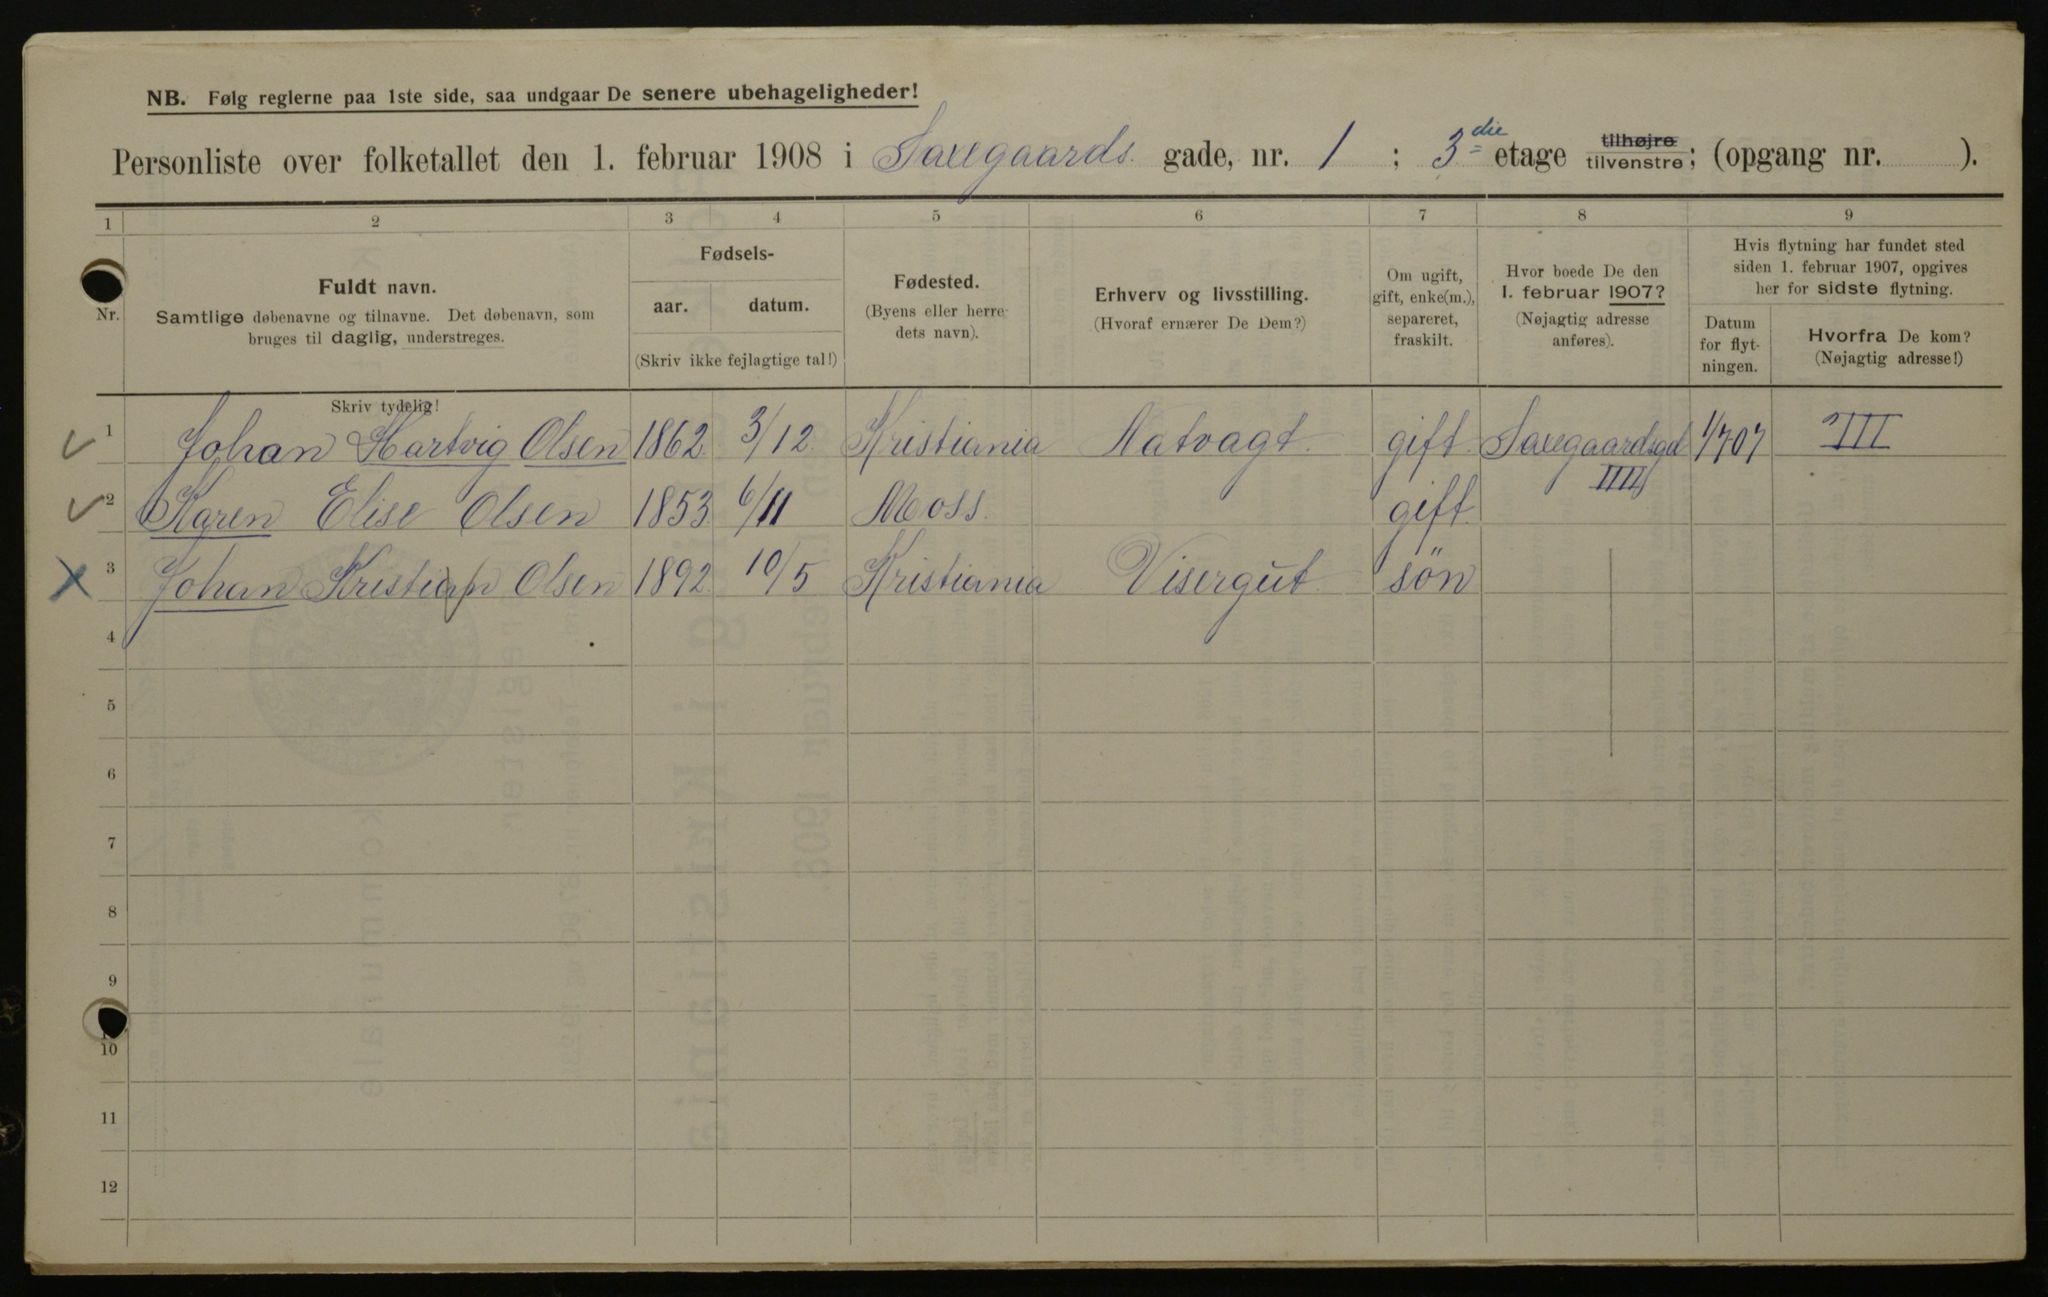 NB. Følg reglerne paa 1ste side, saa undgaar De senere ubehageligheder!
Personliste over folketallet den 1. februar 1908 i Saxegaards gade, nr. 1 ; 3die etage tilhøjre tilvenstre; (opgang nr. ).
1 2 3 4 5 6 7 8 9
Nr.
Fuldt navn.
Samtlige døbenavne og tilnavne. Det døbenavn, som
bruges til daglig, understreges.
Fødsels-
aar. datum.
(Skriv ikke fejlagtige tal!)
Fødested.
(Byens eller herre-
dets navn).
Erhverv og livsstilling.
(Hvoraf ernærer De Dem?)
Om ugift,
gift, enke(m.),
separeret,
fraskilt.
Hvor boede De den
1. februar 1907?
(Nøjagtig adresse
anføres).
Hvis flytning har fundet sted
siden 1. februar 1907, opgives
her for sidste flytning.
Datum
for flyt-
ningen.
Hvorfra De kom?
(Nøjagtig adresse!)
Skriv tydelig!
1 Johan Hartvig Olsen 1862 3/12 Kristiania Natvagt gift Saxegaardsgd 1/7 07 III
IIII
2 Karen Elise Olsen 1853 6/11 Moss. gift
3 Johan Kristian Olsen 1892 10/5 Kristiania Visergut søn
4
5
6
7
8
9
10
11
12